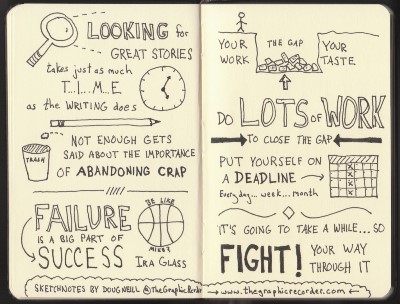 LOOKING for
GREAT STORIES
takes just as much
T...I...M...E
as the WRITING does
NOT ENOUGH GETS
SAID ABOUT THE IMPORTANCE
OF ABANDONING CRAP
TRASH
FAILURE
IS A BIG PART OF
SUCCESS
BE LIKE
MIKE!
IRA GLASS
SKETCHNOTES BY DOUG NEILL @TheGraphicRecorder
YOUR WORK
THE GAP
YOUR TASTE
DO LOTS OF WORK
TO CLOSE THE GAP
PUT YOURSELF ON
A DEADLINE
Every day... week... month
IT'S GOING TO TAKE A WHILE... SO
FIGHT! YOUR WAY
THROUGH IT
www.thegraphicrecorder.com